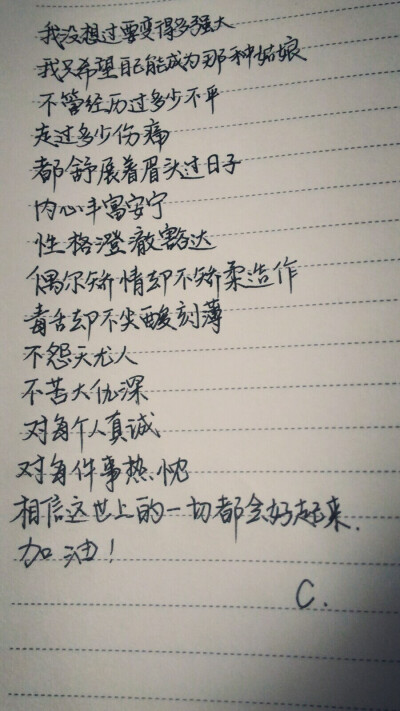 我没想过要变得多强大
我只希望自己能成为那种姑娘
不管经历过多少不平
走过多少伤痛
都舒展着眉头过日子
内心丰富安宁
性格澄澈豁达
偶尔矫情却不矫柔造作
毒舌却不尖酸刻薄
不怨天尤人
不苦大仇深
对每个人真诚
对每件事热忱
相信这世上的一切都会好起来.
加油!
C.